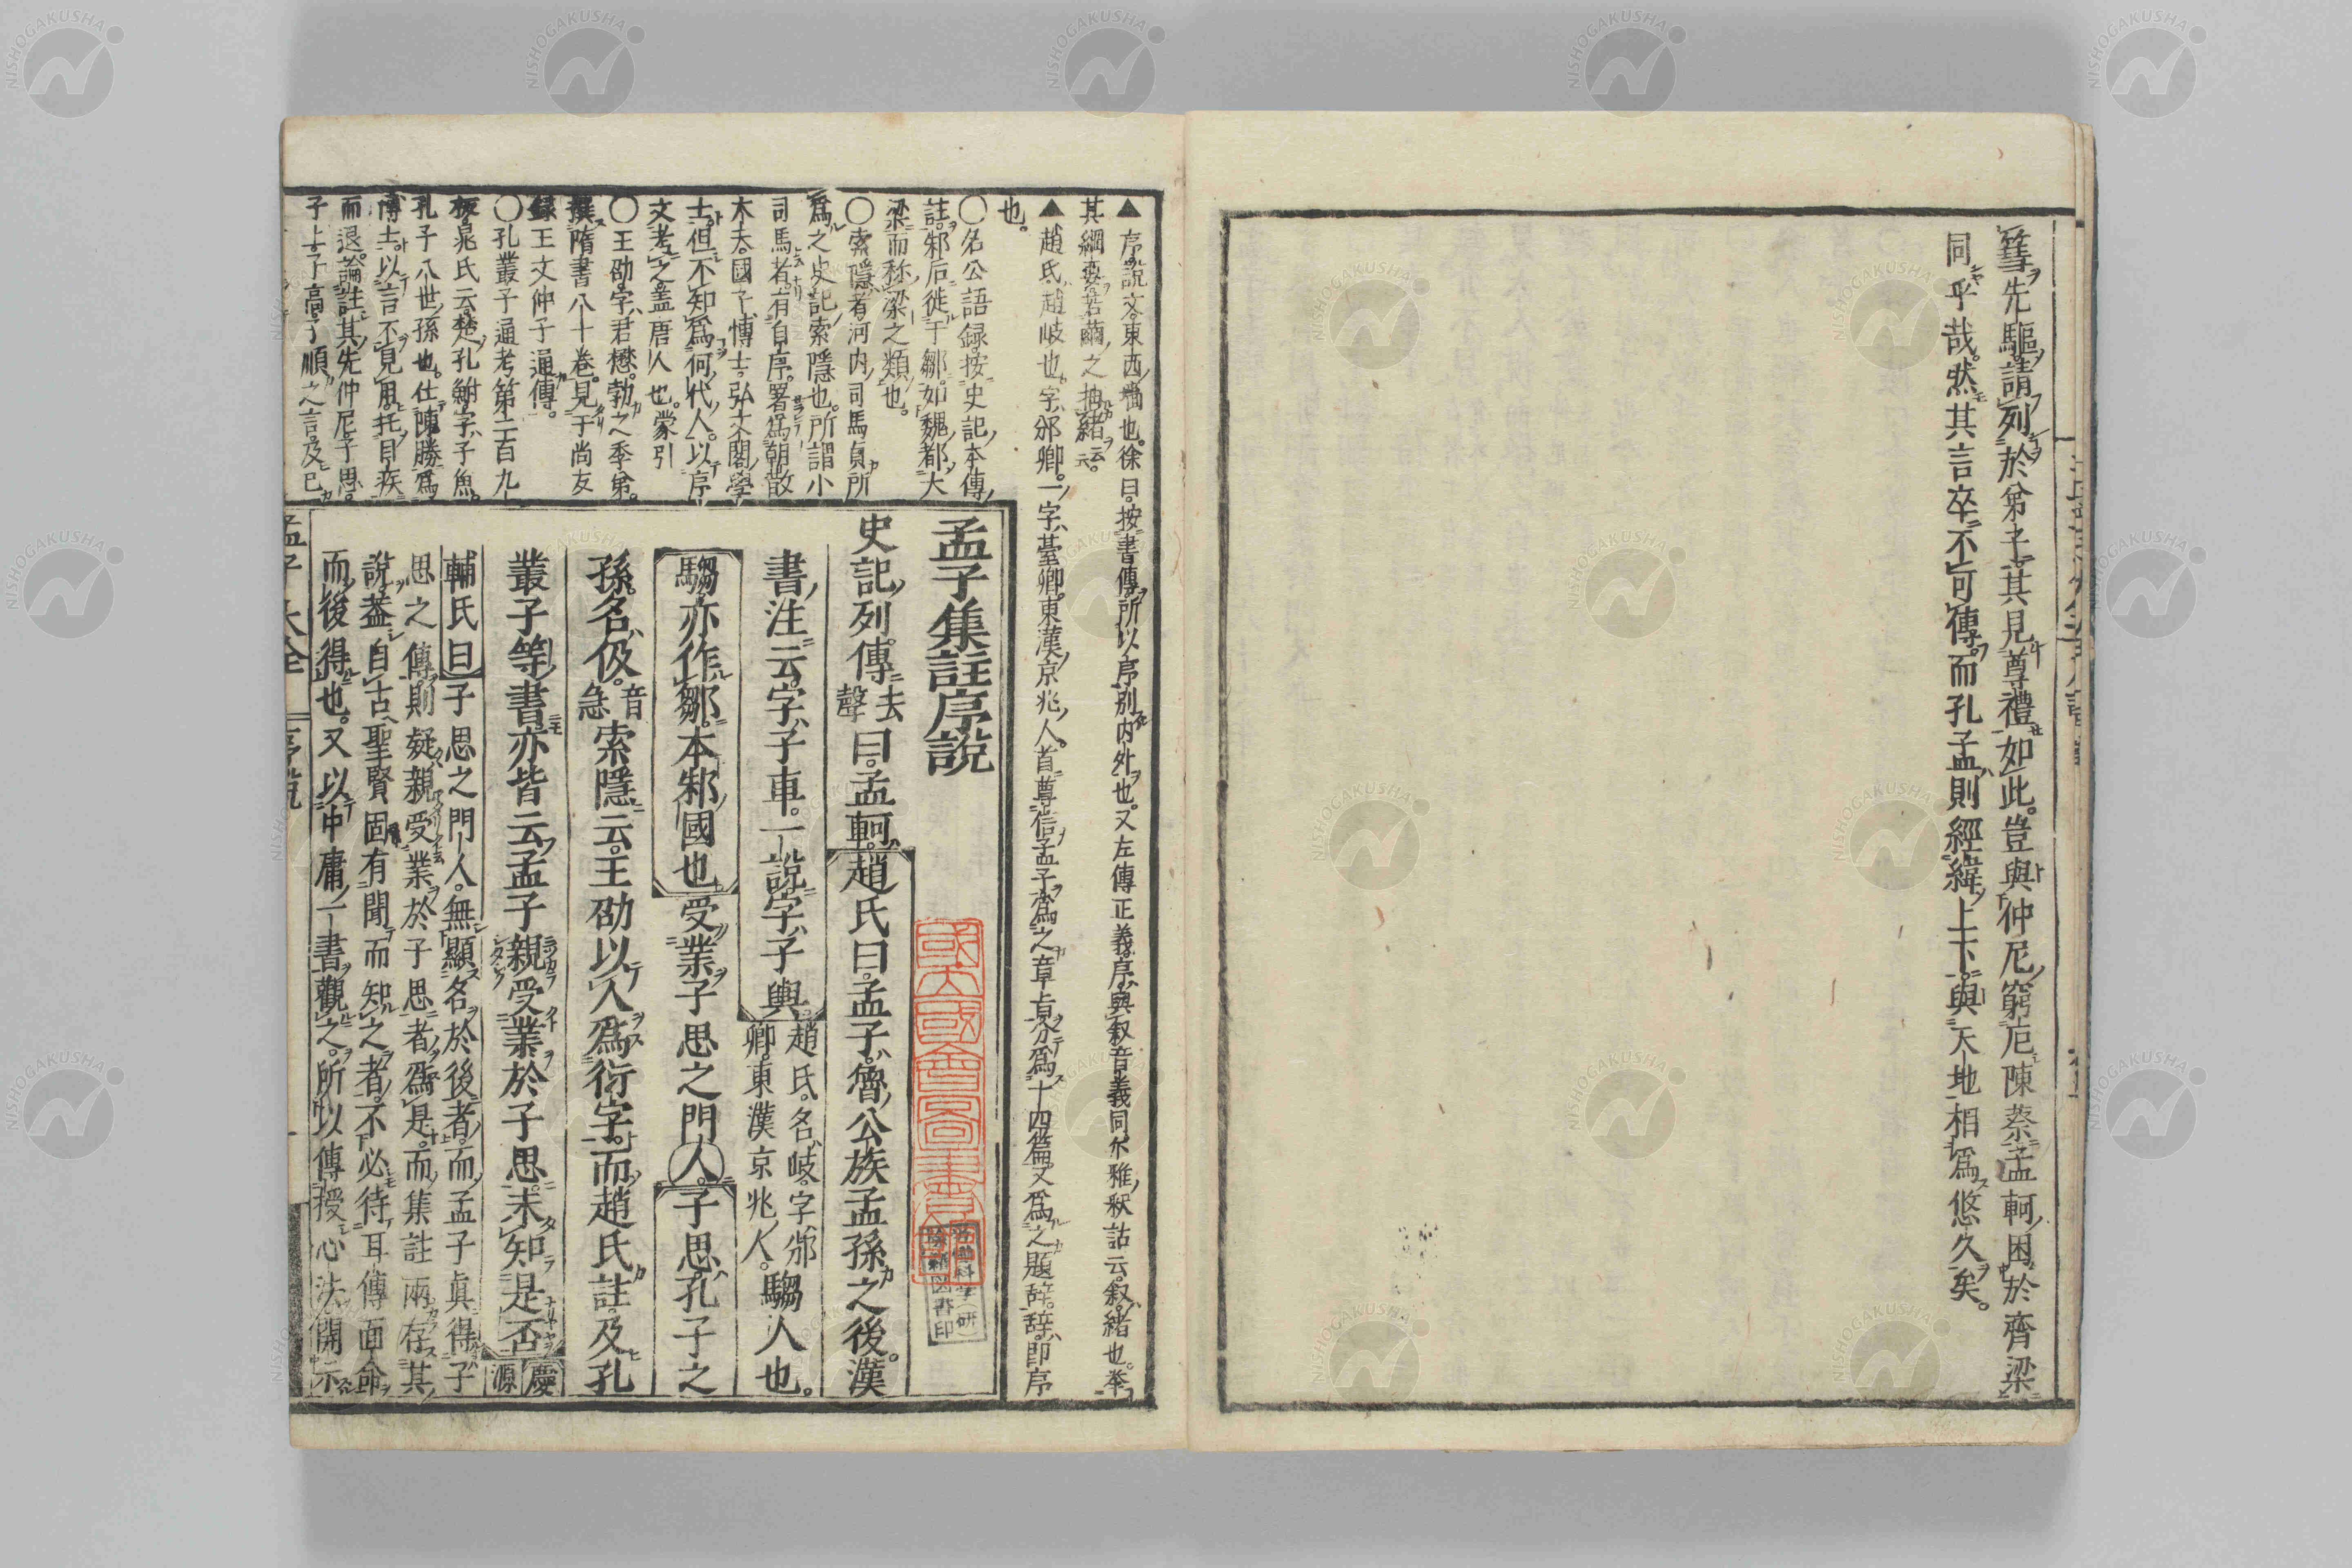 篲先驅請列於弟子其見尊禮如此。豈與仲尼窮厄陳蔡孟軻困於齊梁
同乎哉。然其言卒不可傳。而孔孟則經緯上下。與天地相爲悠久矣。
▲序說文。東西牆也。徐曰。按書傳所以序別内外也。又左傳正義。序與叙音義同。尔雅釈詁云。叙緒也。挙
其綱要。若繭之抽緒云。
▲趙氏。趙岐也。字邠卿。一字臺卿。東漢京兆人。首尊信孟子。爲之章㫖。分爲十四篇。又爲之題辞。辞即序
也。
○名公語録。按史記本傳
註。邾后徙于鄒。如魏都大
梁而称梁之類也。
○索隱者河内司馬貞所
爲之史記索隱也。所謂小
司馬者。有自序。署爲朝散
大夫。國子博士。弘文閣學
士。但不知爲何代人。以序
文考之。盖唐人也。蒙引
○王劭字君懋。勃之季弟。
撰隋書八十卷。見于尚友
録王文仲子通傳。
○孔叢子通考第二百九
板。晁氏云。楚孔鮒字子魚。
孔子八世孫也。仕陳勝爲
博士。以言不見用。托目疾
而退。論註其先仲尼子思。
子上子高子順之言及己
孟子集註序說
史記列傳去聲曰。孟軻。趙氏曰。孟子。魯公族孟孫之後。漢
書注云。字子車。一說字子輿。趙氏。名岐。字邠卿。東漢京兆人。騶人也。
騶亦作鄒。本邾國也受業子思之門人。子思。孔子之
孫。名伋。音急索隱云。王劭以人爲衍字。而趙氏註。及孔
叢子等書。亦皆云。孟子親受業於子思。未知是否慶源
輔氏曰子思之門人。無顯名於後者。而孟子眞得子
思之傳。則疑親受業於子思者爲是。而集註兩存其
說。蓋自古聖賢固有聞而知之者。不必待耳傳面命
而後得也。又以中庸一書觀之。所以傳授心法開示
孟子大全
序說
國立國會圖書館